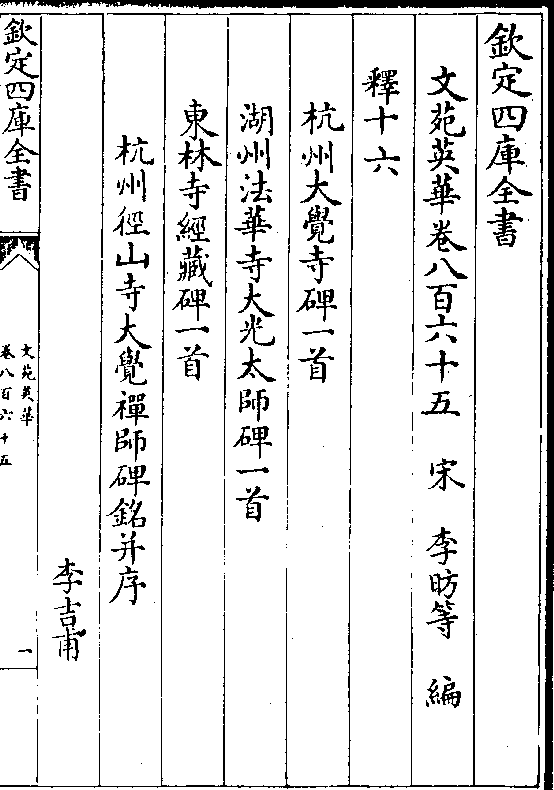 欽定四庫全書
文苑英華卷八百六十五　宋　李昉等　編
釋十六
杭州大覺寺碑一首
湖州法華寺大光太師碑一首
東林寺經藏碑一首
杭州徑山寺大覺禪師碑銘并序
李吉甫
欽定四庫全書
文苑英華
卷八百六十五
一